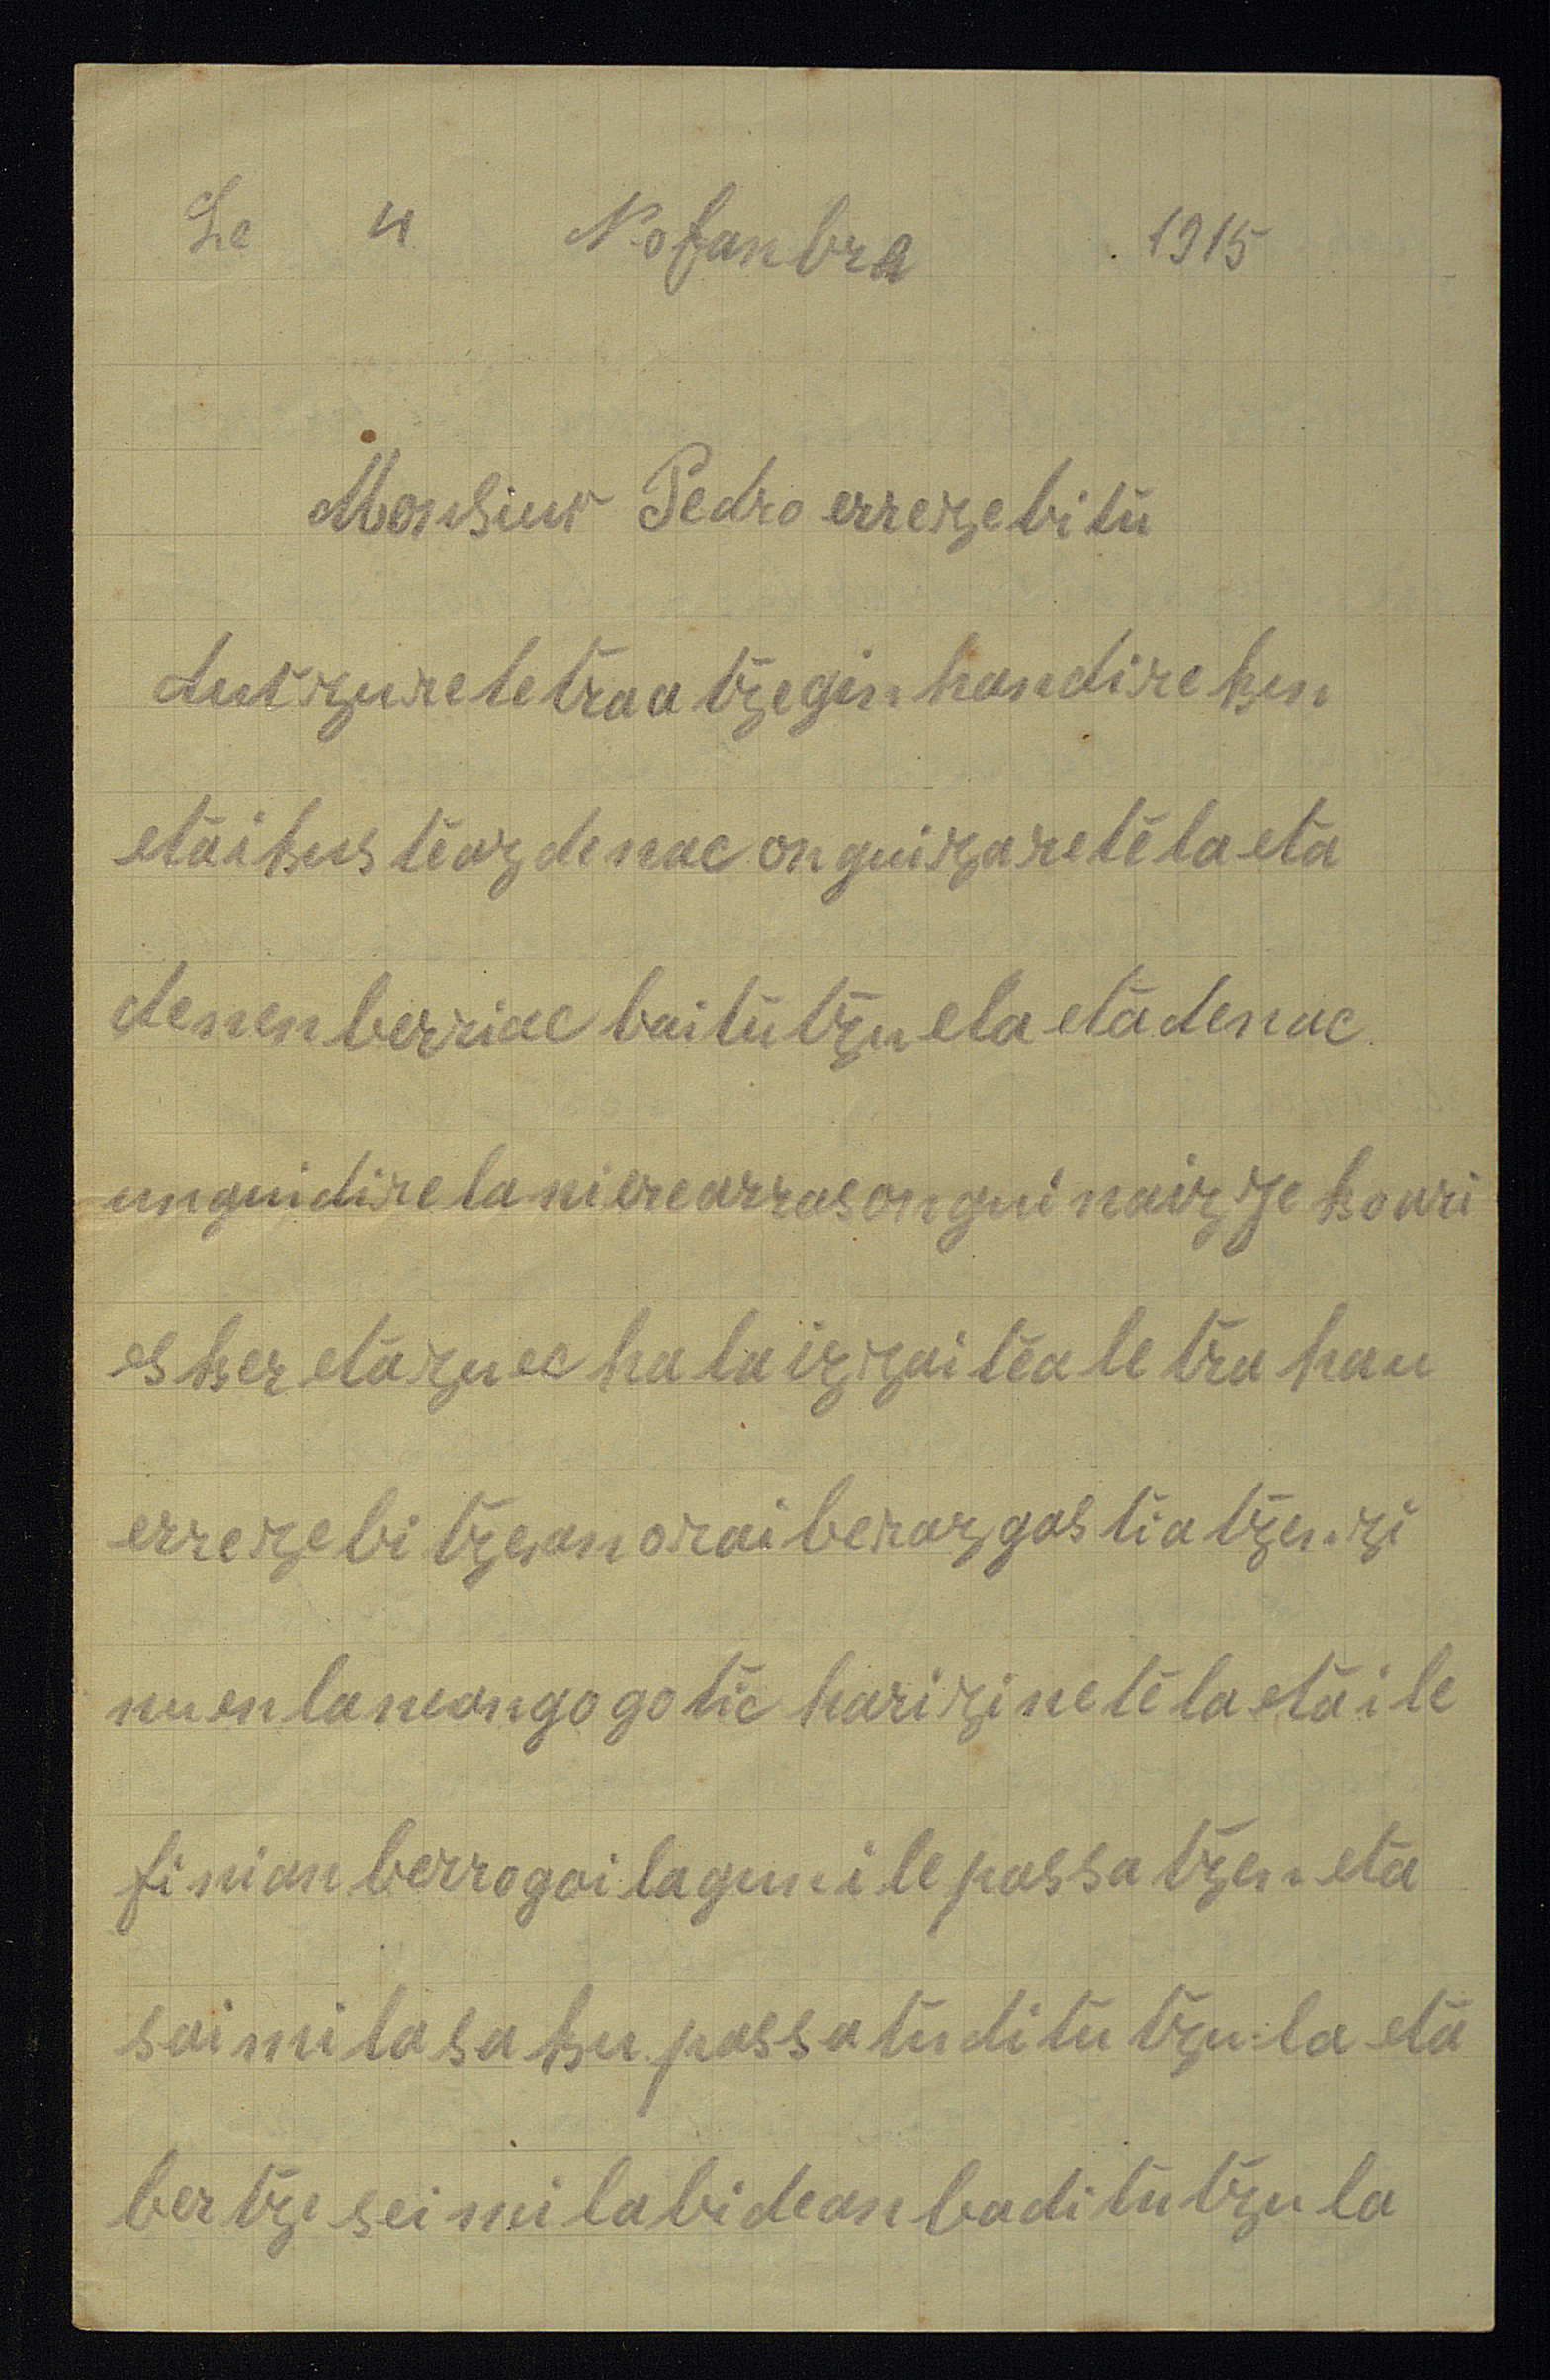 Le 4 Nofanbra 1915
Monsiur Pedro errezebitu
dut zure letraa tzegin handirekin
eta ikus teaz denac onguizaretela eta
denen berriac baitutzuela eta denac
unguidirela ni ere arras ongui naiz Jekoari
esker eta zuec hala izzaitea letra hau
errezebitzean orai beraz gastiatzen zi
nuen la neango gotic harizinetela eta ile
finian berrogoi lagun ile passatzen eta
soi mila saku passatu ditutzu la eta
bertze sei mila bidean baditutzu la